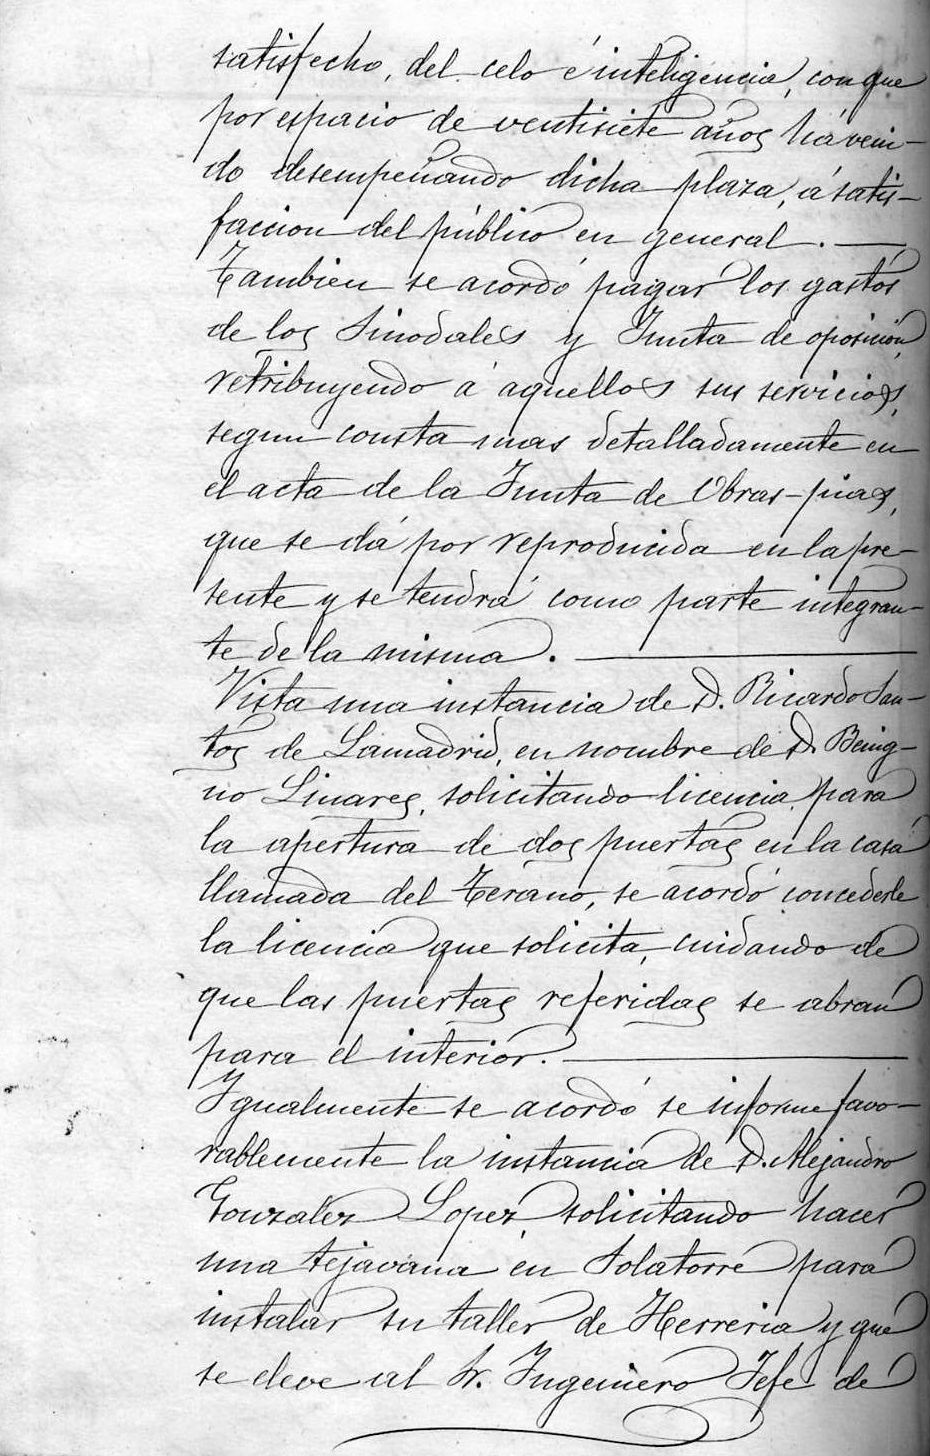 satisfecho, del celo é inteligencia, con que
por espacio de ventisiete años há veni-
do desempeñando dicha plaza, á satis-
faccion del público en general. —
Tambien se acordó pagar los gastos
de los Sinodales y Junta de oposicion,
retribuyendo á aquellos sus servicios,
segun consta mas detalladamente en
el acta de la Junta de Obras-pias,
que se dá por reproducida en la pre-
sente y se tendrá como parte integran-
te de la misma. —
Vista una instancia de D. Ricardo San-
tos de Lamadrid, en nombre de D. Benig-
no Linares, solicitando licencia para
la apertura de dos puertas en la casa
llamada del Terano, se acordó concederle
la licencia que solicita, cuidando de
que las puertas referidas se abran
para el interior. —
Igualmente se acordó se informe favo-
rablemente la instancia de D. Alejandro
Gonzalez Lopez, solicitando hacer
una tejavana en Solatorre para
instalar su taller de Herreria y que
se eleve al Sr. Ingeniero Jefe de